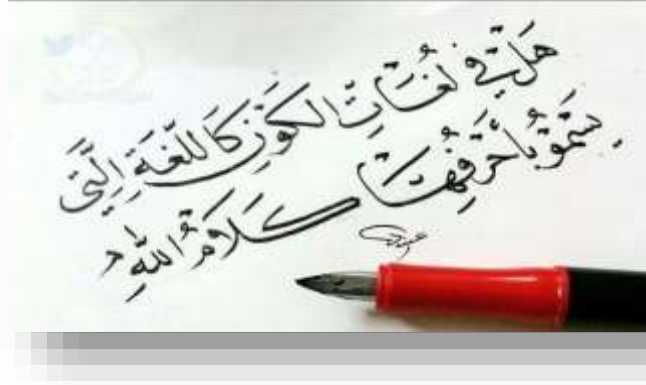 هَل في لُغَاتِ الكَوْنِ كَاللُّغَةِ الَّتي
يَسْمُو بِأَحْرُفِهَا كَلَامُ اللهِ